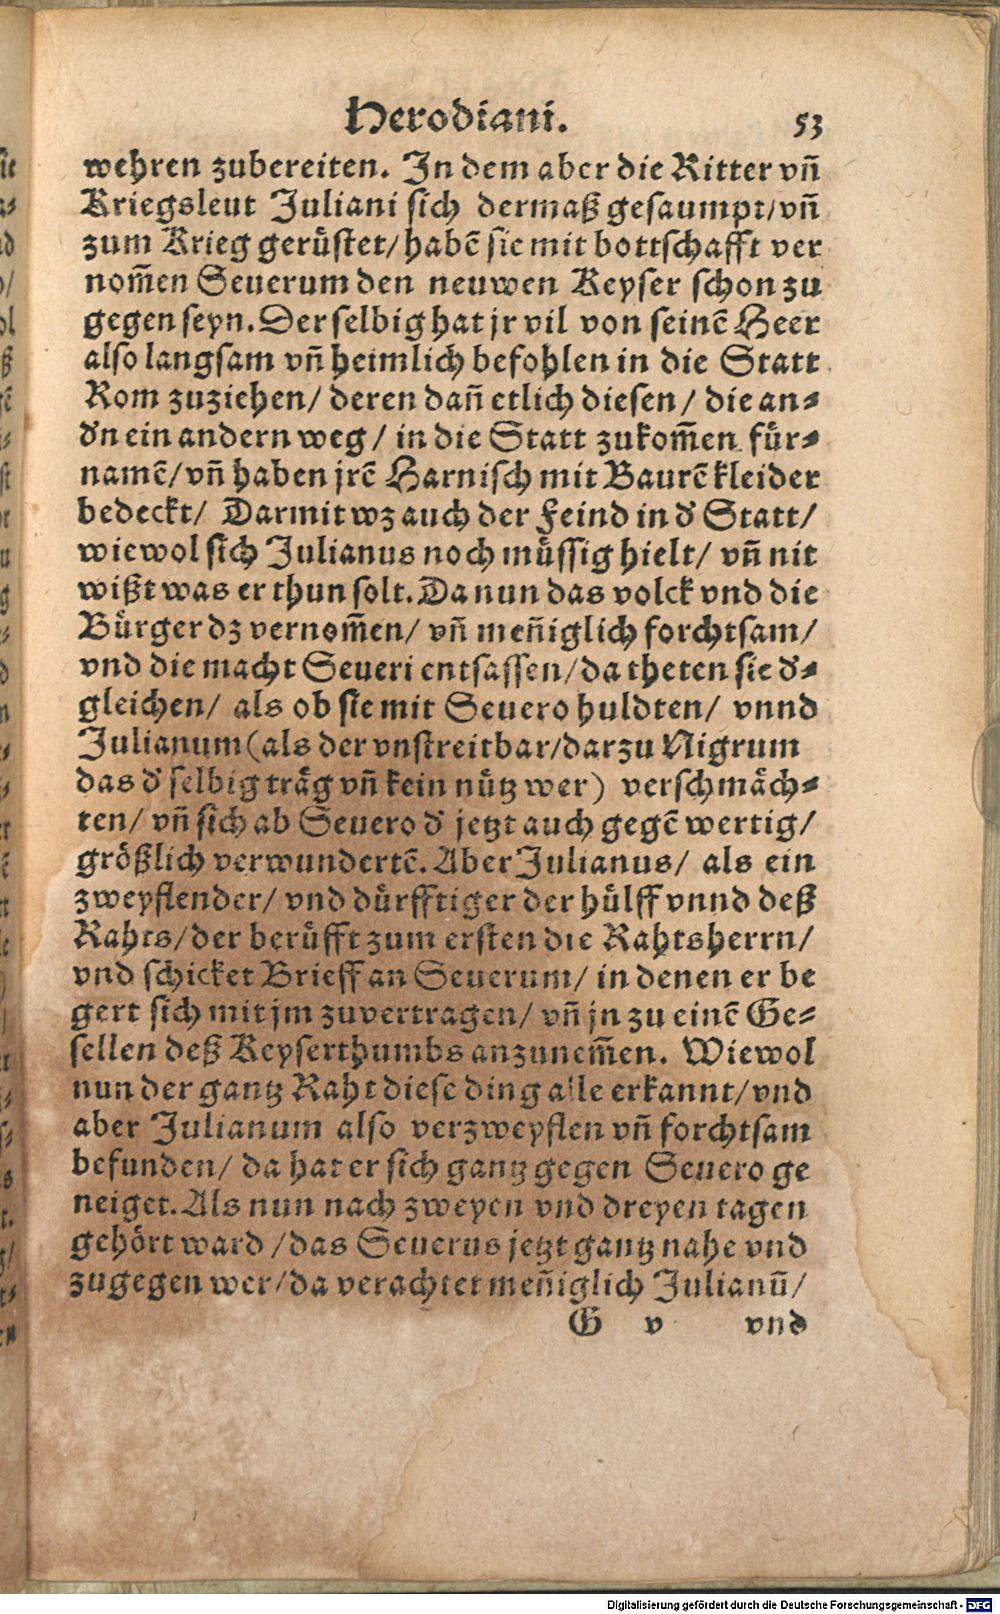 Herodiani. 53
wehren zubereiten. In dem aber die Ritter vñ
Kriegsleut Juliani sich dermaß gesaumpt/vñ
zum Krieg gerüstet/habẽ sie mit bottschafft ver
nom̃en Seuerum den neuwen Keyser schon zu
gegen seyn. Derselbig hat jr vil von seinẽ Heer
also langsam vñ heimlich befohlen in die Statt
Rom zuziehen/ deren dañ etlich diesen/ die an-
d'n ein andern weg/ in die Statt zukom̃en für-
namẽ/vñ haben jrẽ Harnisch mit Baurẽ kleider
bedeckt/ Darmit wz auch der Feind in d' Statt/
wiewol sich Julianus noch müssig hielt/ vñ nit
wißt was er thun solt. Da nun das volck vnd die
Bürger dz vernom̃en/ vñ meñiglich forchtsam/
vnd die macht Seueri entsassen/da theten sie d'-
gleichen/ als ob sie mit Seuero huldten/ vnnd
Julianum (als der vnstreitbar/darzu Nigrum
das d' selbig träg vñ kein nütz wer) verschmäch-
ten/ vñ sich ab Seuero d' jetzt auch gegẽ wertig/
größlich verwundertẽ. Aber Julianus/ als ein
zweyflender/ vnd dürfftiger der hülff vnnd deß
Rahts/der berüfft zum ersten die Rahtsherrn/
vnd schicket Brieff an Seuerum/ in denen er be
gert sich mit jm zuvertragen/ vñ jn zu einẽ Ge-
sellen deß Keyserthumbs anzunem̃en. Wiewol
nun der gantz Raht diese ding alle erkannt/vnd
aber Julianum also verzweyflen vñ forchtsam
befunden/ da hat er sich gantz gegen Seuero ge
neiget. Als nun nach zweyen vnd dreyen tagen
gehört ward /das Seuerus jetzt gantz nahe vnd
zugegen wer/da verachtet meñiglich Julianũ/
G v vnd
Digitalisierung gefördert durch die Deutsche Forschungsgemeinschaft - DFG